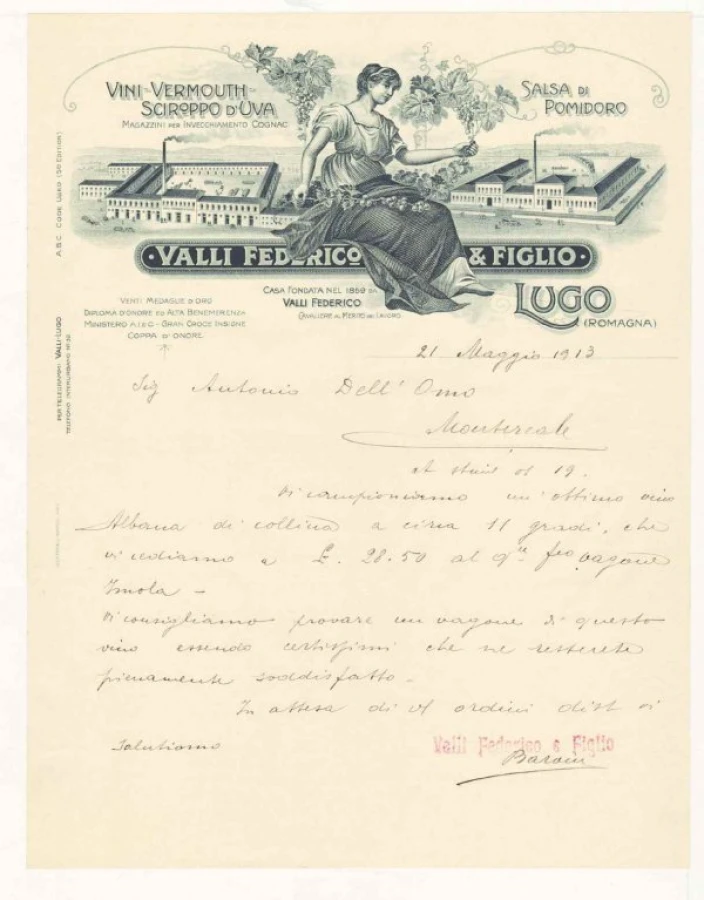 VINI-VERMOUTH-
SCIROPPO D'UVA
MAGAZZINI PER INVECCHIAMENTO COGNAC
SALSA DI
POMIDORO
·VALLI FEDERICO & FIGLIO·
CASA FONDATA NEL 1859 DA
VALLI FEDERICO
CAVALIERE AL MERITO DEL LAVORO
LUGO
(ROMAGNA)
VENTI MEDAGLIE D'ORO
DIPLOMA D'ONORE ED ALTA BENEMERENZA
MINISTERO A.I. & C - GRAN CROCE INSIGNE
COPPA D'ONORE
A.B.C. CODE USED (5a EDITION)
PER TELEGRAMMI: VALLI-LUGO
TELEFONO INTERURBANO
21 Maggio 1913
Sig Antonio Dell'Omo
Montereale
19.
Vi campioniamo un'ottimo vino
Albana di collina a circa 11 gradi, che
vi cediamo a £. 28.50 al qle fco vagone
Imola -
Vi consigliamo provare un vagone di questo
vino essendo certissimi che ne resterete
pienamente soddisfatto -
In attesa di Vs ordini dist vi
salutiamo
Valli Federico & Figlio